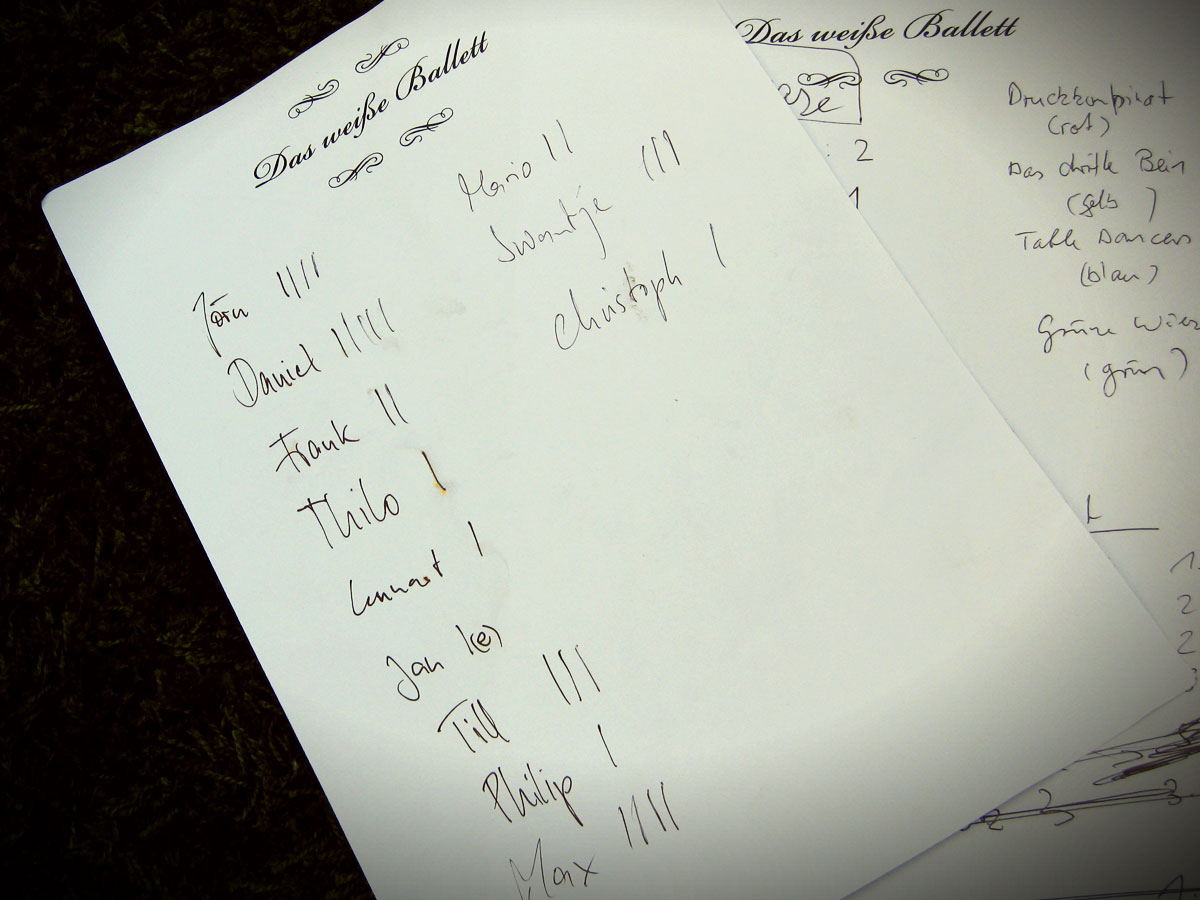 Das weiße Ballett
Mario II
Swantje III
Christoph I
Jörn IIII
Daniel IIIII
Frank II
Thilo I
Lennart I
Jan I(e)
Till III
Philip I
Max IIII
Das weiße Ballett
2
1
Druckkonpirat
(rot)
Das dritte Bein
(gelb)
Table Dancers
(blau)
Grüne
(grün)
1.
2
2
3